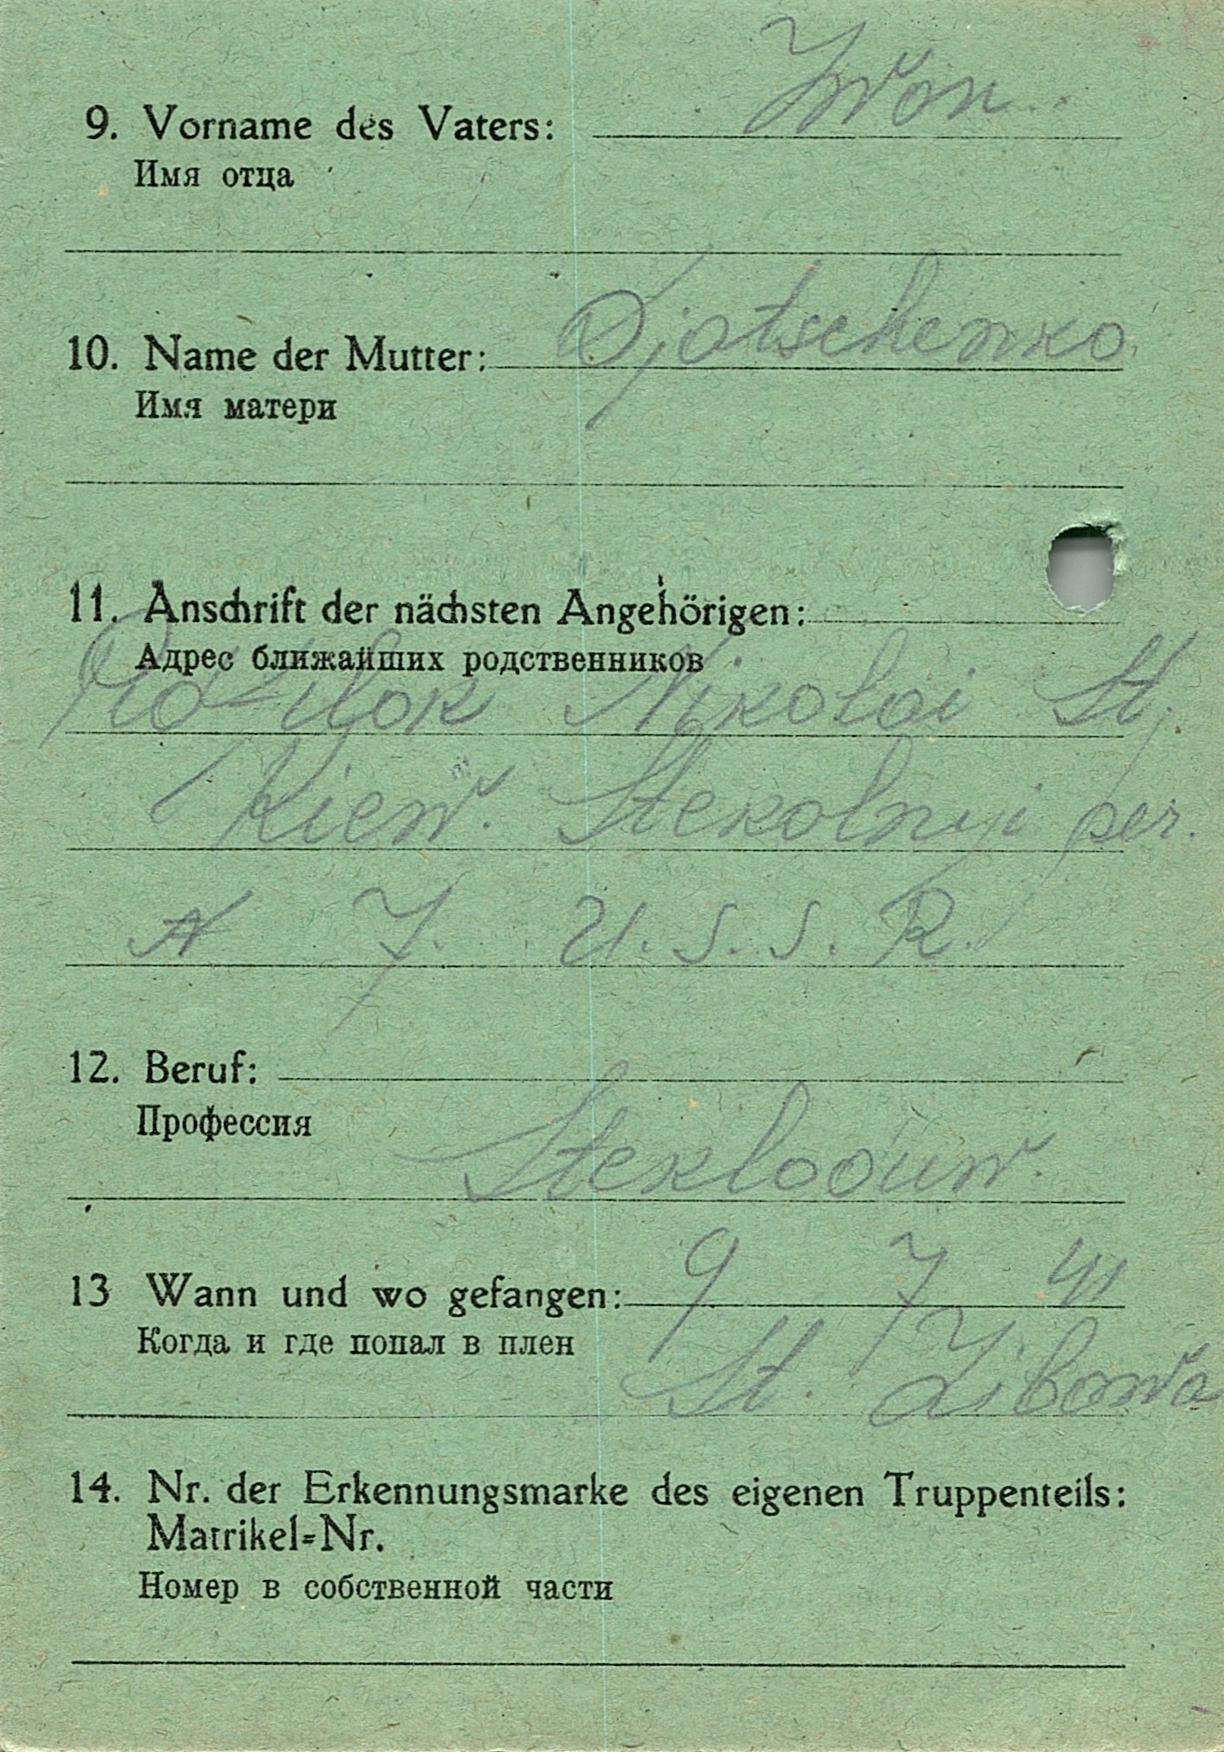 9. Vorname des Vaters: Iwan
Имя отца
10. Name der Mutter: Djatschenko
Имя матери
11. Anschrift der nächsten Angehörigen:
Адрес ближайших родственников
Nikolai St.
Kiew. Stekolnyi per.
N 7. U.S.S.R.
12. Beruf:
Профессия
13 Wann und wo gefangen: 9 7 41
Когда и где попал в плен
St.
14. Nr. der Erkennungsmarke des eigenen Truppenteils:
Matrikel=Nr.
Номер в собственной части